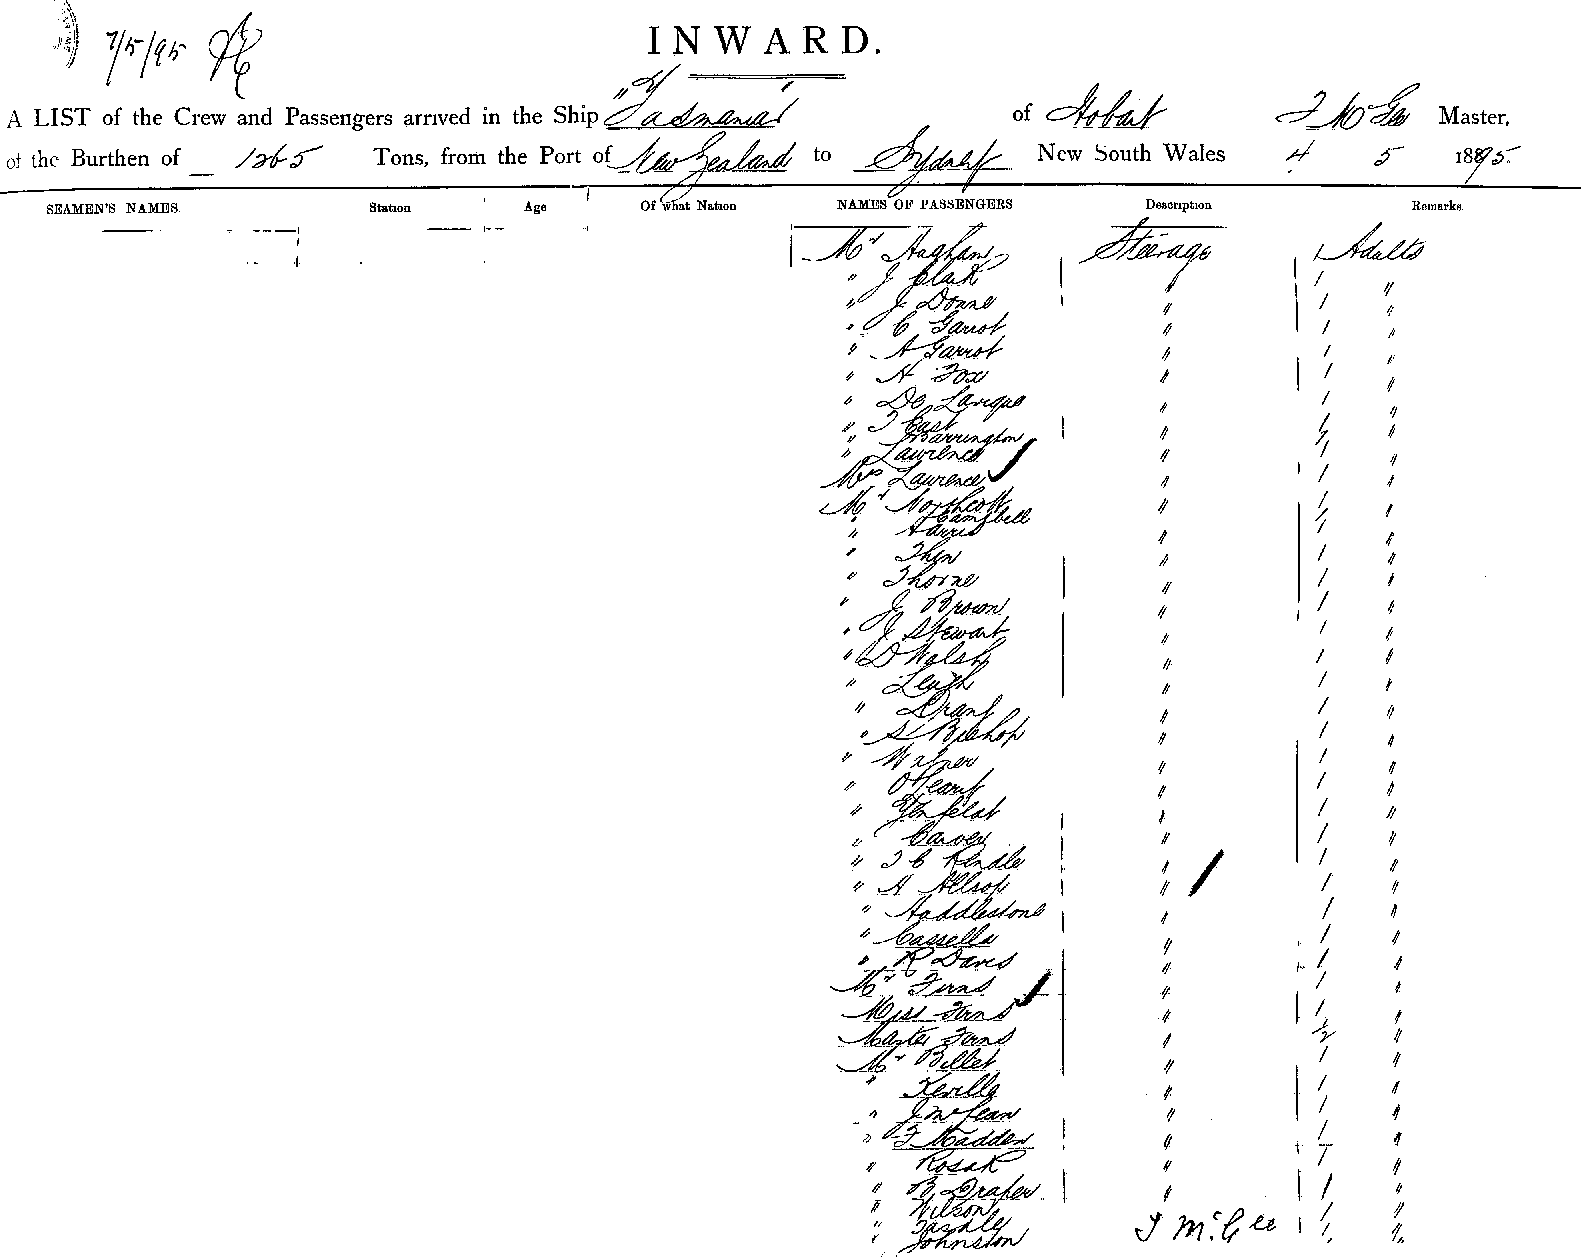 7/5/95
INWARD.
A LIST of the Crew and Passengers arrived in the Ship "Tasmania" of Hobart T McGee Master,
of the Burthen of 1265 Tons, from the Port of New Zealand to Sydney New South Wales 4 5 1895.
SEAMEN'S NAMES. Station Age Of what Nation NAMES OF PASSENGERS Description Remarks
Mr Steerage 1 Adults
" J Clark 1 "
" J Donne " 1 "
" C Garrot " 1 "
" A Garrot " 1 "
" A Fox " 1 "
" De " 1 "
" T East " 1 "
" Barrington 1
" Lawrence " 1 "
Mrs Lawrence " 1 "
Mr Northcott " 1 "
" Campbell 1
" Harris " 1 "
" Then " 1 "
" Thorne " 1 "
" J Brown " 1 "
" J Stewart " 1 "
" D Walsh " 1 "
" Leigh " 1 "
" Grant " 1 "
" S Bishop " 1 "
" " 1 "
" " 1 "
" " 1 "
" Carver " 1 "
" T C Kendle " 1 "
" A Allsop " 1 "
" Haddlestone " 1 "
" Cassella " 1 "
" R Davis " 1 "
Mr Ferns " 1 "
Miss Ferns " 1 "
Master Ferns " 1/2 "
Mr Billet " 1 "
" Keville " 1 "
" J McLean " 1 "
" F Madden " 1 "
" Rosak " 1 "
" B Draper " 1 "
" Wilson 1
" T McGee 1 "
" Johnston